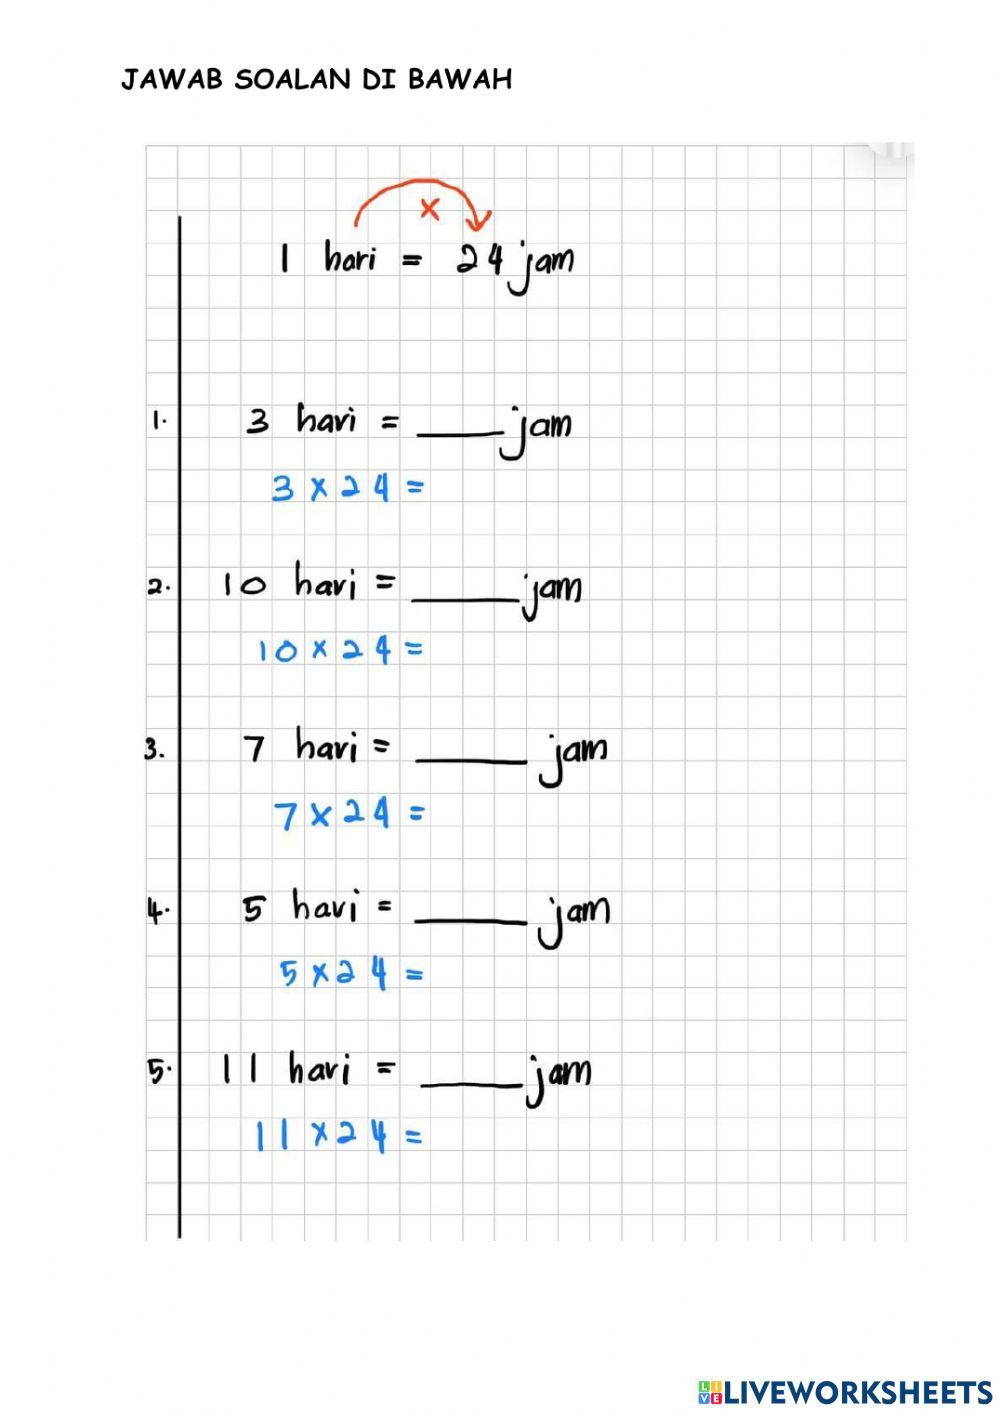 JAWAB SOALAN DI BAWAH
×
1 hari = 24 jam
1. 3 hari = ___ jam
3 × 24 =
2. 10 hari = ___ jam
10 × 24 =
3. 7 hari = ___ jam
7 × 24 =
4. 5 hari = ___ jam
5 × 24 =
5. 11 hari = ___ jam
11 × 24 =
LIVE LIVEWORKSHEETS